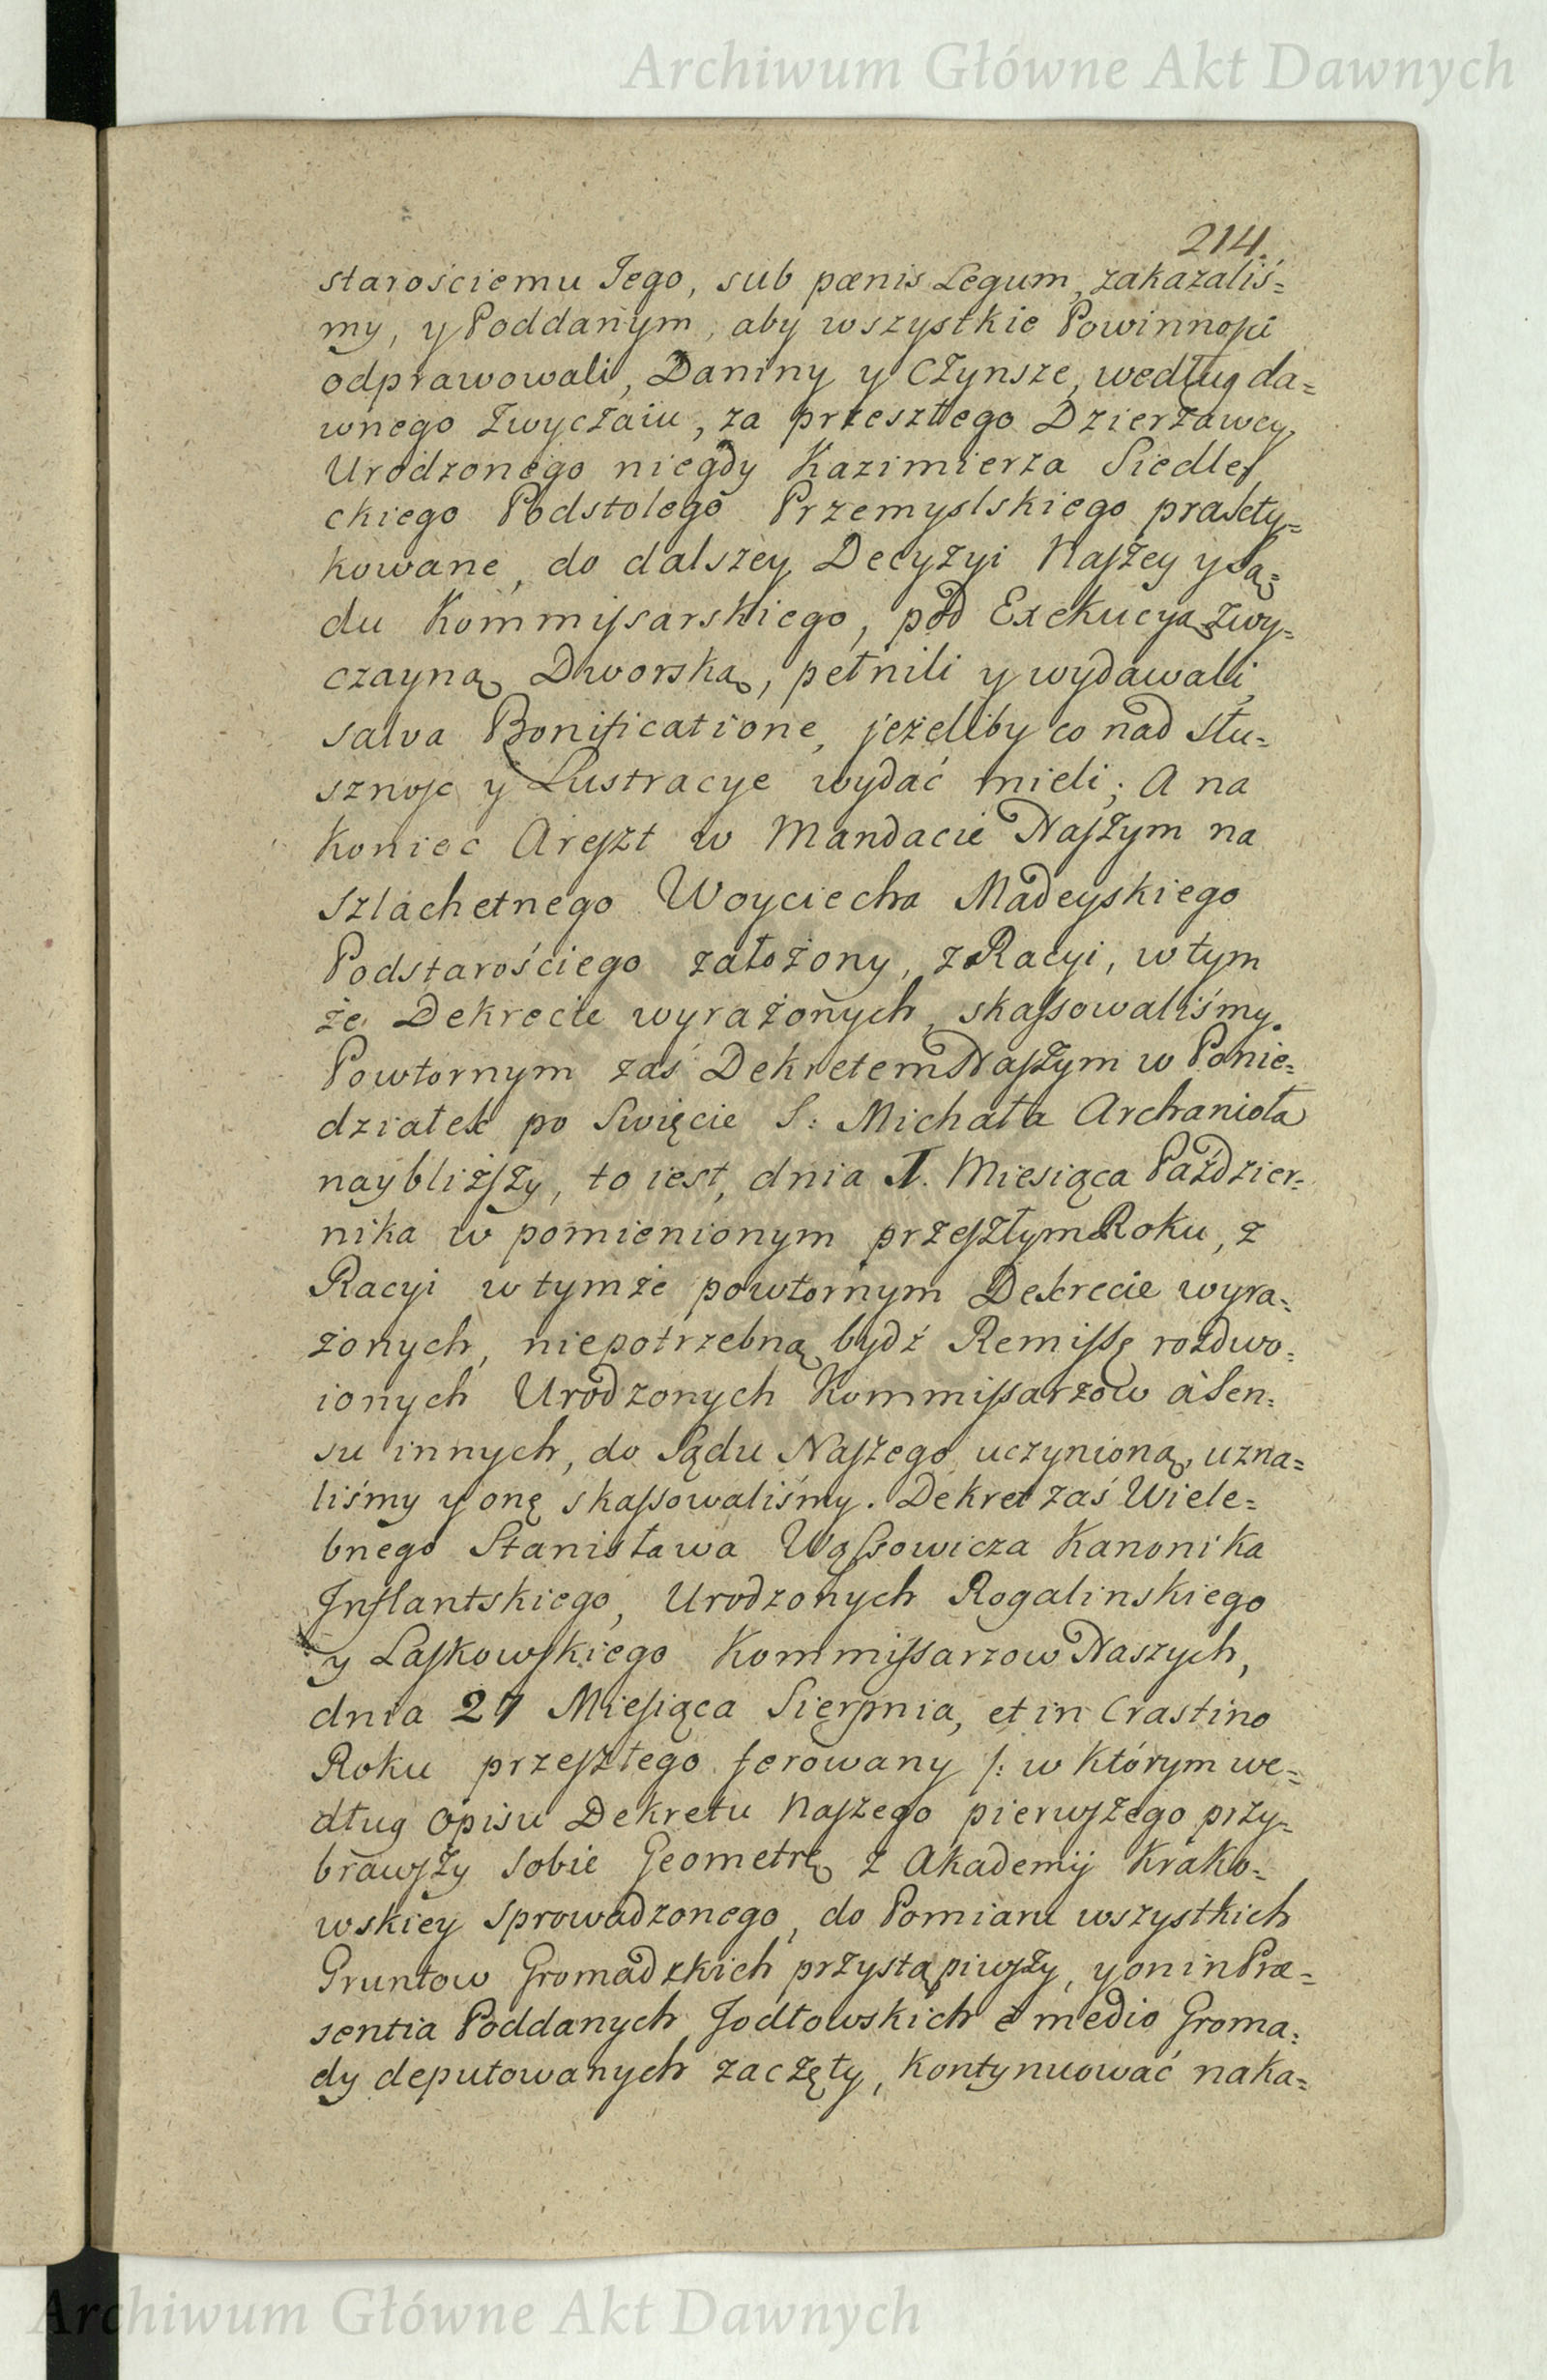 Archiwum Główne Akt Dawnych
214.
starościemu Jego, sub pœnis Legum, zakazaliś=
my, y Poddanym, aby wszystkie Powinnoſci
odprawowali, Daniny y Czynsze, według da=
wnego Zwyczaiu, za przeszłego Dzierzawcy,
Urodzonego niegdy Kazimierza Siedle=
ckiego Podstolego Przemyslskiego prakty=
kowane, do dalszey Decyzyi Naſzey y Są=
du Kommiſsarskiego, pod Exekucyą zwy=
czayną Dworską, pełnili y wydawali,
salva Bonificatione, jeżeliby co nad słu=
sznoſc y Lustracye wydać mieli; A na
koniec Areſzt w Mandacie Naſzym na
szlachetnego Woyciecha Madeyskiego
Podstarościego założony, z Racyi, w tym
że Dekrecie wyrażonych, skaſsowaliśmy.
Powtornym zaś Dekretem Naſzym w Ponie=
działek po Swięcie S: Michała Archanioła
naybliżſzy, to iest, dnia 1. Miesiąca Paździer=
nika w pomienionym przeſzłym Roku, z
Racyi w tymże powtornym Dekrecie wyra=
żonych, niepotrzebną bydź Remiſsę rozdwo=
ionych Urodzonych Kommiſsarzow à Sen=
su innych, do Sądu Naſzego uczynioną, uzna=
liśmy y onę skaſsowaliśmy. Dekret zaś Wiele=
bnego Stanisława Wąſsowicza Kanonika
Inflantskiego, Urodzonych Rogalinskiego
y Laſkowſkiego Kommiſsarzow Naszych,
dnia 27 Mieſiąca Sierpnia, et in Crastino
Roku przeſzłego ferowany /: w którym we=
dług Opisu Dekretu Naſzego pierwſzego przy=
brawſzy sobie Geometrę z Akademij Krako=
wskiey sprowadzonego, do Pomiaru wszystkich
Gruntow Gromadzkich przystąpiwſzy, y on in Præ=
sentia Poddanych Jodłowskich è medio Groma=
dy deputowanych zaczęty, kontynuować naka=
Archiwum Główne Akt Dawnych